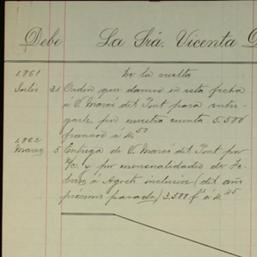 Debe La Srá. Vicenta D
1861 De la vuelta
Julio 31 Orden que damos en esta fecha
á D. Marcó del Pont para entre-
garle por nuestra cuenta 5.500
francos á
1862
Marzo 5 Entrega de D. Marcó del Pont por
m/c. y por mensualidades de Fe-
brero á Agosto inclusive (del año
próximo pasado) 3.500 f. á